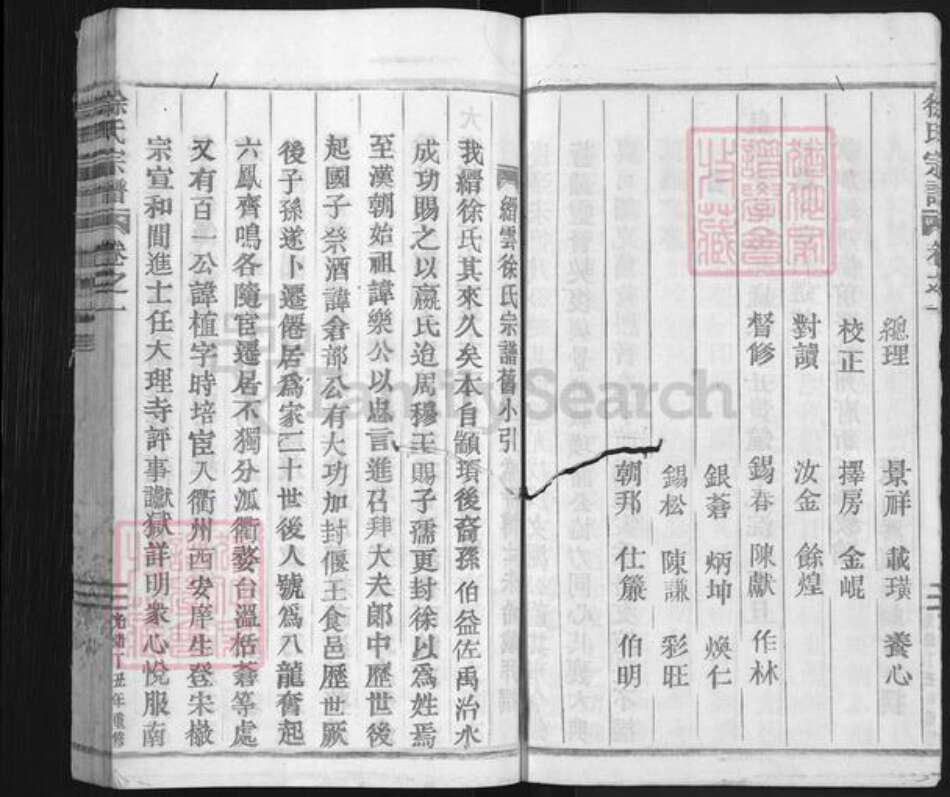 總理 景祥 載璜 養心
校正 擇房 金崐
對讀 汝金 餘煌
督修 錫春 陳獻 作林
銀蒼 炳坤 煥仁
錫松 陳謙 彩旺
朝邦 仕簾 伯明
縉雲徐氏宗譜舊小引
我縉徐氏其來久矣本自顓頊後裔孫伯益佐禹治水
成功賜之以嬴氏迨周穆王賜子孺更封徐以爲姓焉
至漢朝始祖諱樂公以忠言進召拜大夫郎中歷世後
起國子祭酒諱倉部公有大功加封偃王食邑歷世厥
後子孫遂卜遷僊居爲家二十世後人號爲八龍奮起
六鳳齊鳴各隨官遷居不獨分派衢婺台溫栝蒼等處
又有百一公諱植字時培宦入衢州西安庠生登宋徽
宗宣和間進士任大理寺評事讞獄詳明衆心悅服南
徐氏宗譜 卷之一
光緒丁丑年重修
徐氏宗譜 卷之一
FamilySearch